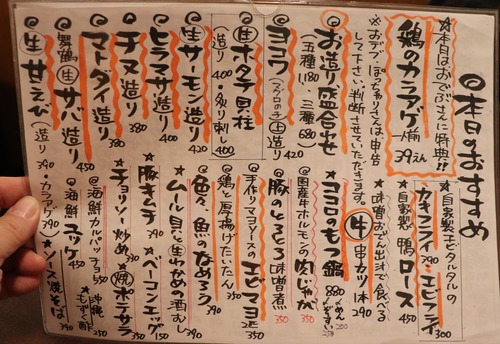 ◎本日のおすすめ
☆本日はおでぶさんに特典!!
鶏のカラアゲ 一人前 39えん
※おデブ、ぽっちゃりさんは申告
して下さい。判断させていただきます。
◎お造り盛合わせ
五種 1180 三種 680
◎ヨコワ(マグロの子)生造り 420
◎生ホタテ貝柱
造り 400・炙り刺し 400
◎生サーモン造り 420
◎ヒラマサ造り 400
◎チヌ造り 380
◎マトダイ造り 380
◎舞鶴生サバ造り 450
◎生甘えび 造り 390・カラアゲ 390
★自家製タルタルの
カキフライ 390・エビフライ 300
★自家製 鴨ロース 450
★味噌おでん出汁で食べる
牛串カツ 1本 290
★ココロのもつ鍋 880
★国産牛ホルモンの肉じゃが 350
★豚のとろとろ味噌煮 350
★手作りマヨソースエビマヨ 2匹 350
★鶏と厚揚げたいたん 350
★色々魚のなめろう 390
★ムール貝と生わかめの酒むし 390
★豚キムチ 390
★ベーコンエッグ 150
★チョリソー炒め 390
★焼ポテサラ 390
◎海鮮カルパッチョ 550
◎沖縄もずく酢
◎海鮮ユッケ 450
★ソース焼そば 390